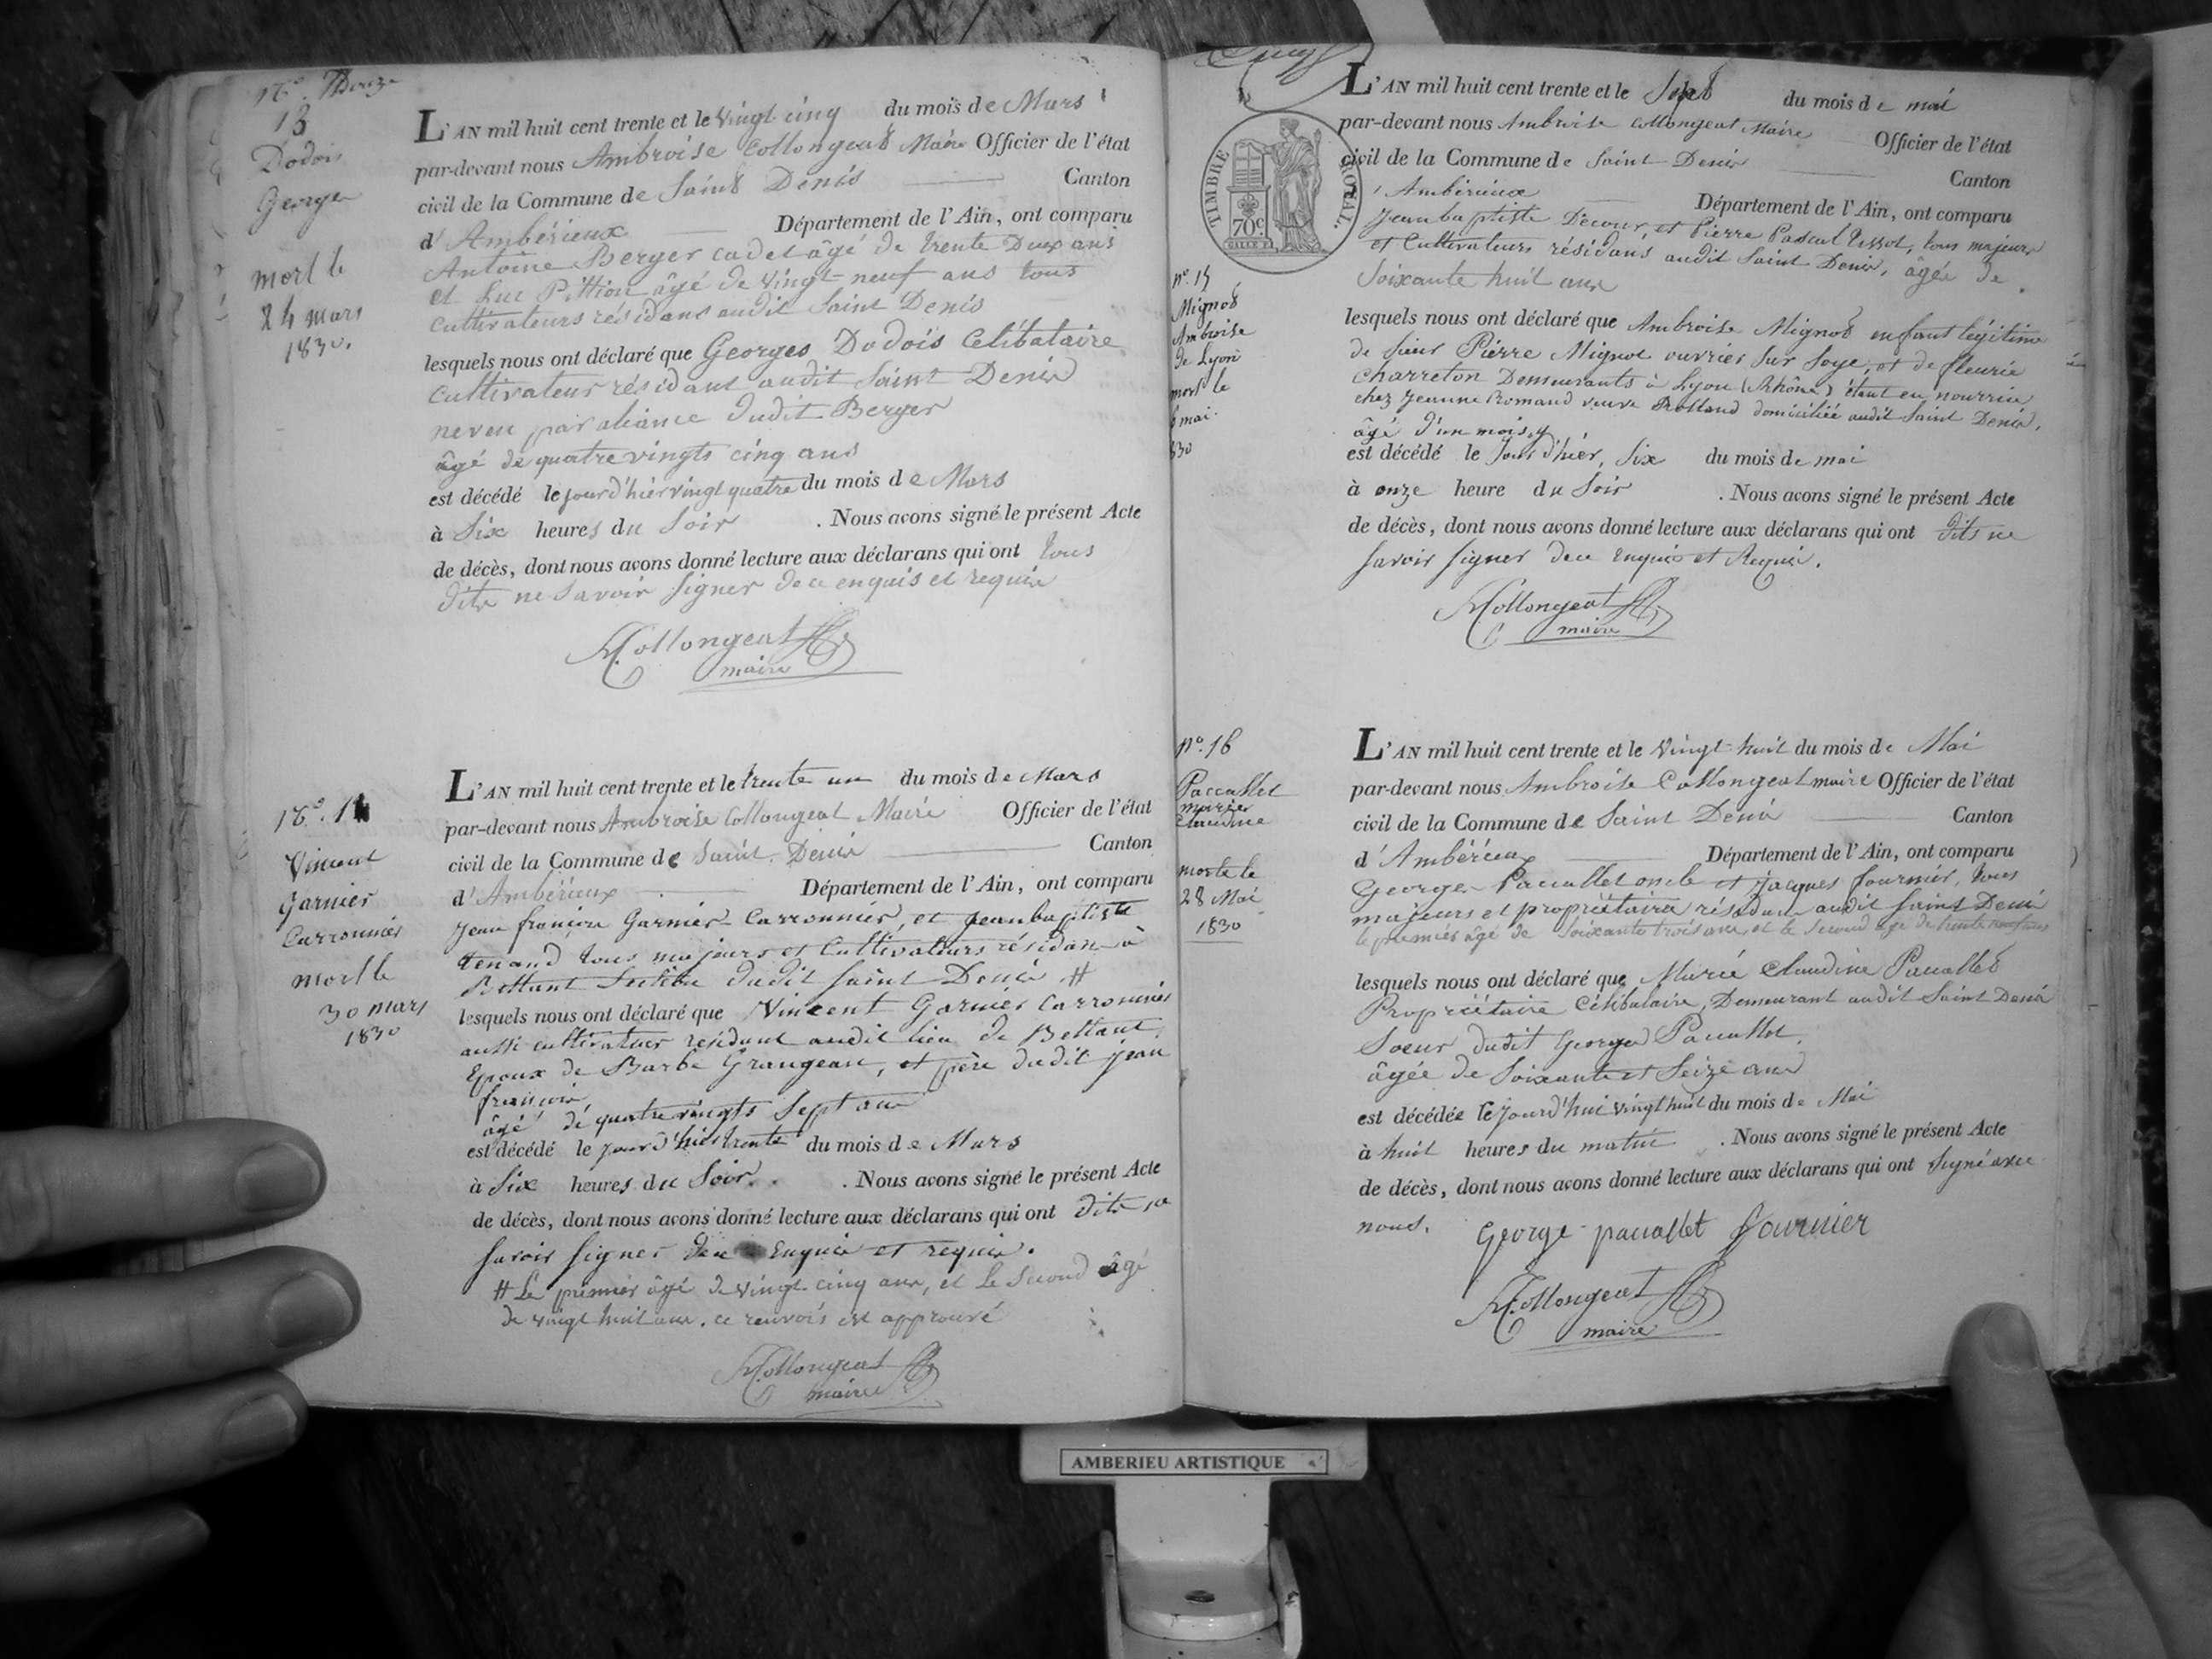 13
Dodois
George
mort le
24 mars
1830.
L'AN mil huit cent trente et le vingt cinq du mois de Mars
par-devant nous Ambroise Collongeat Maire Officier de l'état
civil de la Commune de Saint Denis Canton
d'Ambérieux Département de l'Ain, ont comparu
Antoine Berger cadet âgé de trente Deux ans
et Luc Pittion âgé de vingt neuf ans tous
cultivateurs résidans audit Saint Denis
lesquels nous ont déclaré que Georges Dodois Célibataire
cultivateur résidant audit Saint Denis
neveu par aliance dudit Berger
âgé de quatre vingts cinq ans
est décédé le jour d'hier vingt quatre du mois de Mars
à Six heures du Soir . Nous avons signé le présent Acte
de décès, dont nous avons donné lecture aux déclarans qui ont tous
dits ne Savoir signer de ce enquis et requis
Collongeat
maire
n°. 14
Vincent
Garnier
Carronnier
mort le
30 mars
1830
L'AN mil huit cent trente et le trente un du mois de Mars
par-devant nous Ambroise Collongeat Maire Officier de l'état
civil de la Commune de Saint Denis Canton
d'Ambérieux Département de l'Ain, ont comparu
Jean françois Garnier Carronnier, et Jean baptiste
tenand tous majeurs et Cultivateurs résidans à
Bettant dudit Saint Denis #
lesquels nous ont déclaré que Vincent Garnier Carronnier
aussi cultivateur résidant audit lieu de Bettant
Epoux de Barbe Grangean, et père dudit jean
françois,
âgé de quatre vingts Sept ans
est décédé le jour d'hier trente du mois de Mars
à Six heures du Soir. . Nous avons signé le présent Acte
de décès, dont nous avons donné lecture aux déclarans qui ont dits ne
Savoir signer de ce Enquis et requis.
# Le premier âgé de vingt cinq ans, et le Second âgé
de vingt huit ans. ce renvois est approuvé
Collongeat
maire
TIMBRE ROYAL.
70c.
n°. 15
Mignot
Ambroise
de Lyon
mort le
6 mai
830
L'AN mil huit cent trente et le Sept du mois de mai
par-devant nous Ambroise Collongeat Maire Officier de l'état
civil de la Commune de Saint Denis Canton
Ambérieux Département de l'Ain, ont comparu
Jean baptiste Decour, et Pierre Pascal Tissot, tous majeurs
et Cultivateurs résidans audit Saint Denis, âgés de
Soixante huit ans
lesquels nous ont déclaré que Ambroise Mignot enfant légitime
de Sieur Pierre Mignot ouvrier Sur Soye, et de fleurie
Charreton Demeurants à Lyon (Rhône) étant en nourrice
chez Jeanne Romand veuve Rolland domiciliée audit Saint Denis,
âgé d'un mois,
est décédé le Jour d'hier, Six du mois de mai
à onze heure du Soir . Nous avons signé le présent Acte
de décès, dont nous avons donné lecture aux déclarans qui ont dits ne
Savoir signer de ce Enquis et Requis.
Collongeat
maire
n°. 16
Paccallet
marie
Claudine
morte le
28 Mai
1830
L'AN mil huit cent trente et le vingt huit du mois de Mai
par-devant nous Ambroise Collongeat maire Officier de l'état
civil de la Commune de Saint Denis Canton
d'Ambérieux Département de l'Ain, ont comparu
George Paccallet oncle et jacques fournier, tous
majeurs et propriétaires résidans audit Saint Denis
le premier âgé de Soixante trois ans, et le Second âgé de trente neuf ans
lesquels nous ont déclaré que Marie Claudine Paccallet
Propriétaire Célibataire, Demeurant audit Saint Denis
Soeur dudit George Paccallet,
âgée de Soixante et Seize ans
est décédée le jourd'hui vingt huit du mois de Mai
à huit heures du matin . Nous avons signé le présent Acte
de décès, dont nous avons donné lecture aux déclarans qui ont Signé avec
nous.
George paccallet fournier
Collongeat
maire
AMBERIEU ARTISTIQUE